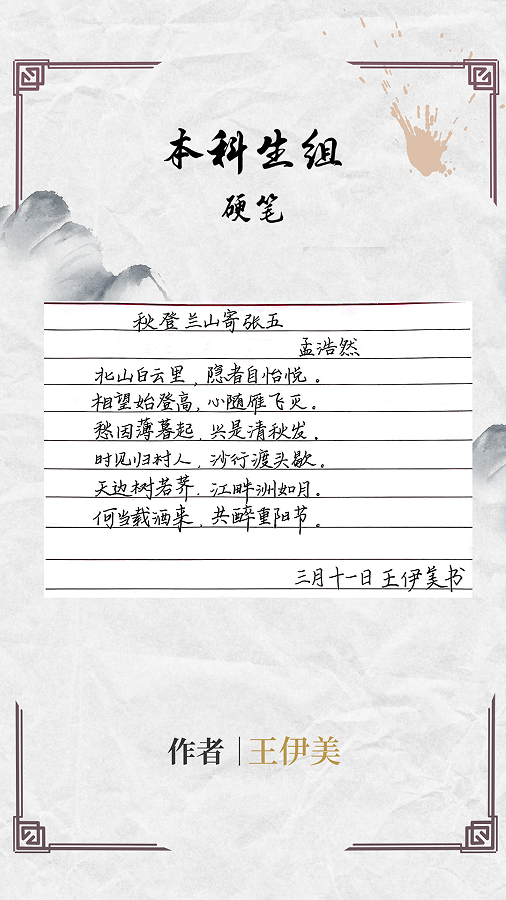 本科生组
硬笔
秋登兰山寄张五
孟浩然
北山白云里，隐者自怡悦。
相望始登高，心随雁飞灭。
愁因薄暮起，兴是清秋发。
时见归村人，沙行渡头歇。
天边树若荠，江畔洲如月。
何当载酒来，共醉重阳节。
三月十一日 王伊美书
作者 | 王伊美